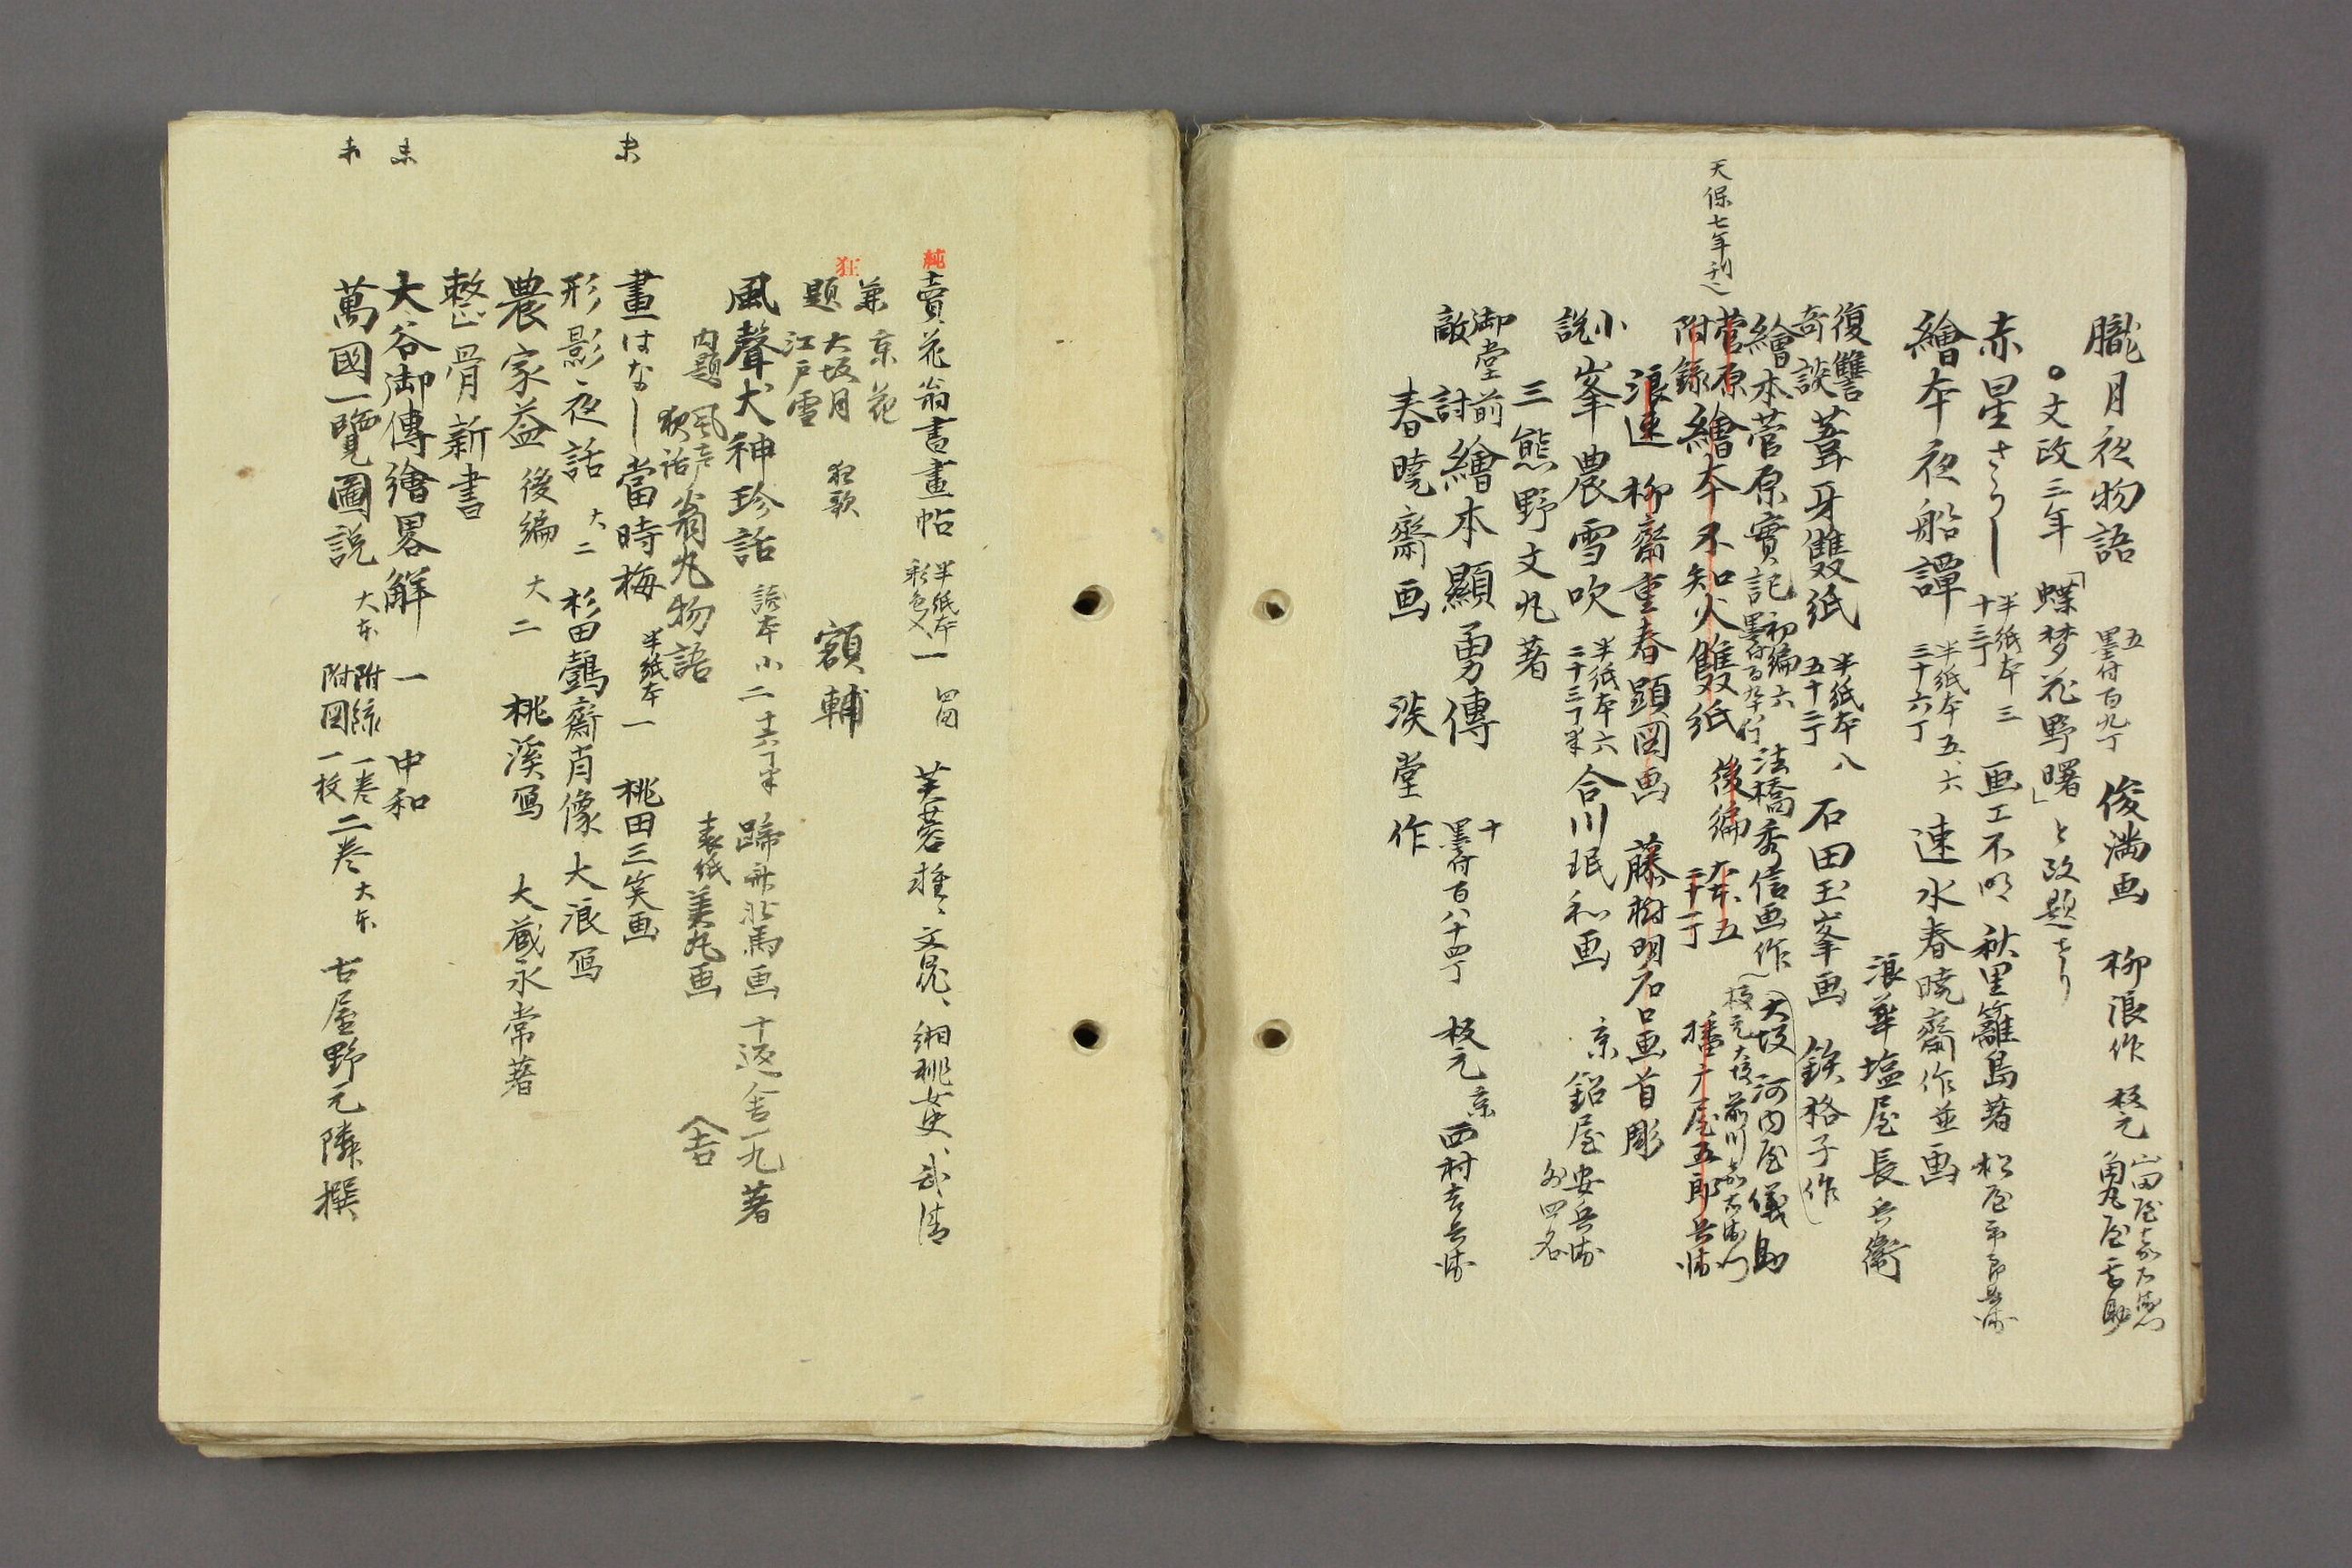 朧月夜物語 五 墨付百九丁 俊満画 柳浪作 板元 山田屋嘉右衛門 角丸屋甚助
○文政三年「蝶梦花野曙」と改題せり
赤星さうし 半紙本三 十三丁 画工不明 秋里籬島著 松屋平郎兵衛
繪本夜船譚 半紙本五、六 三十六丁 速水春暁齋作並画
浪華塩屋長兵衛
復讐奇談 葦牙雙紙 半紙本八 五十二丁 石田玉峯画 鉄格子作
繪本菅原實記 初編六 法橋秀信画作 大坂 河内屋儀助
天保七年刊
菅原附録 繪本不知火雙紙 後編 大本、五 播广屋五郎兵衛
浪速 柳齋重春顕図画 藤樹明石口画首彫
小説 峯農雪吹 半紙本六 二十三丁半 合川珉和画 京 鉛屋安兵衛 外四名
三熊野文丸著
御堂前敵討 繪本顯勇傳 十 墨付百八十四丁 板元 京 西村吉兵衛
春暁齋画 淡堂作
純 賣花翁書畫帖 半紙本 彩色入 一 芙蓉、文晁、緗桃女史、武清
狂 兼題 京花 大坂月 江戸雪 狂歌 額輔
風聲犬神珍話 読本 小二 十六丁半 蹄斎北馬画 十返舎一九著
内題 風声夜話 翁丸物語 表紙美丸画
未 畫はなし當時梅 半紙本一 桃田三笑画
形影夜話 大二 杉田鷧齋肖像 大浪寫
農家益 後編 大二 桃溪寫 大蔵永常著
整骨新書
未 大谷御傳繪畧解 一 中和
未 萬國一覽圖説 大本 附録一巻 附図一枚 二巻 大本 古屋野元隣撰